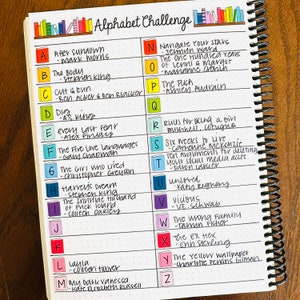 Alphabet Challenge
A After Sundown
- Mark Morris
B The Body
- Stephen King
C Cut & Run
- Ben Acker & Ben Blacker
D Dig
- A.S. King
E Every Last Fear
- Alex Finlay
F The Five Love Languages
- Gary Chapman
G The Girl Who Lived
- Christopher Greyson
H Harvest Dream
- Stephen King
I The Invisible Husband
of Frick Island
- Colleen Oakley
J
K
L Layla
- Colleen Hoover
M My Dark Vanessa
- Kate Elizabeth Russell
N Navigate Your Stars
- Jesmyn Ward
O The One Hundred Years
of Lenni & Margot
- Marianne Cronin
P The Push
- Ashley Audrain
Q
R Rules for Being a Girl
S Six Weeks to Live
- Catherine McKenzie
T Ten Arguments for Deleting
Your Social Media Accts
- Jaron Lanier
U Uninvited
V Vicious
- V.E. Schwab
W The Wrong Family
- Tarryn Fisher
X The Ex Hex
- Erin Sterling
Y The Yellow Wallpaper
- Charlotte Perkins Gilman
Z